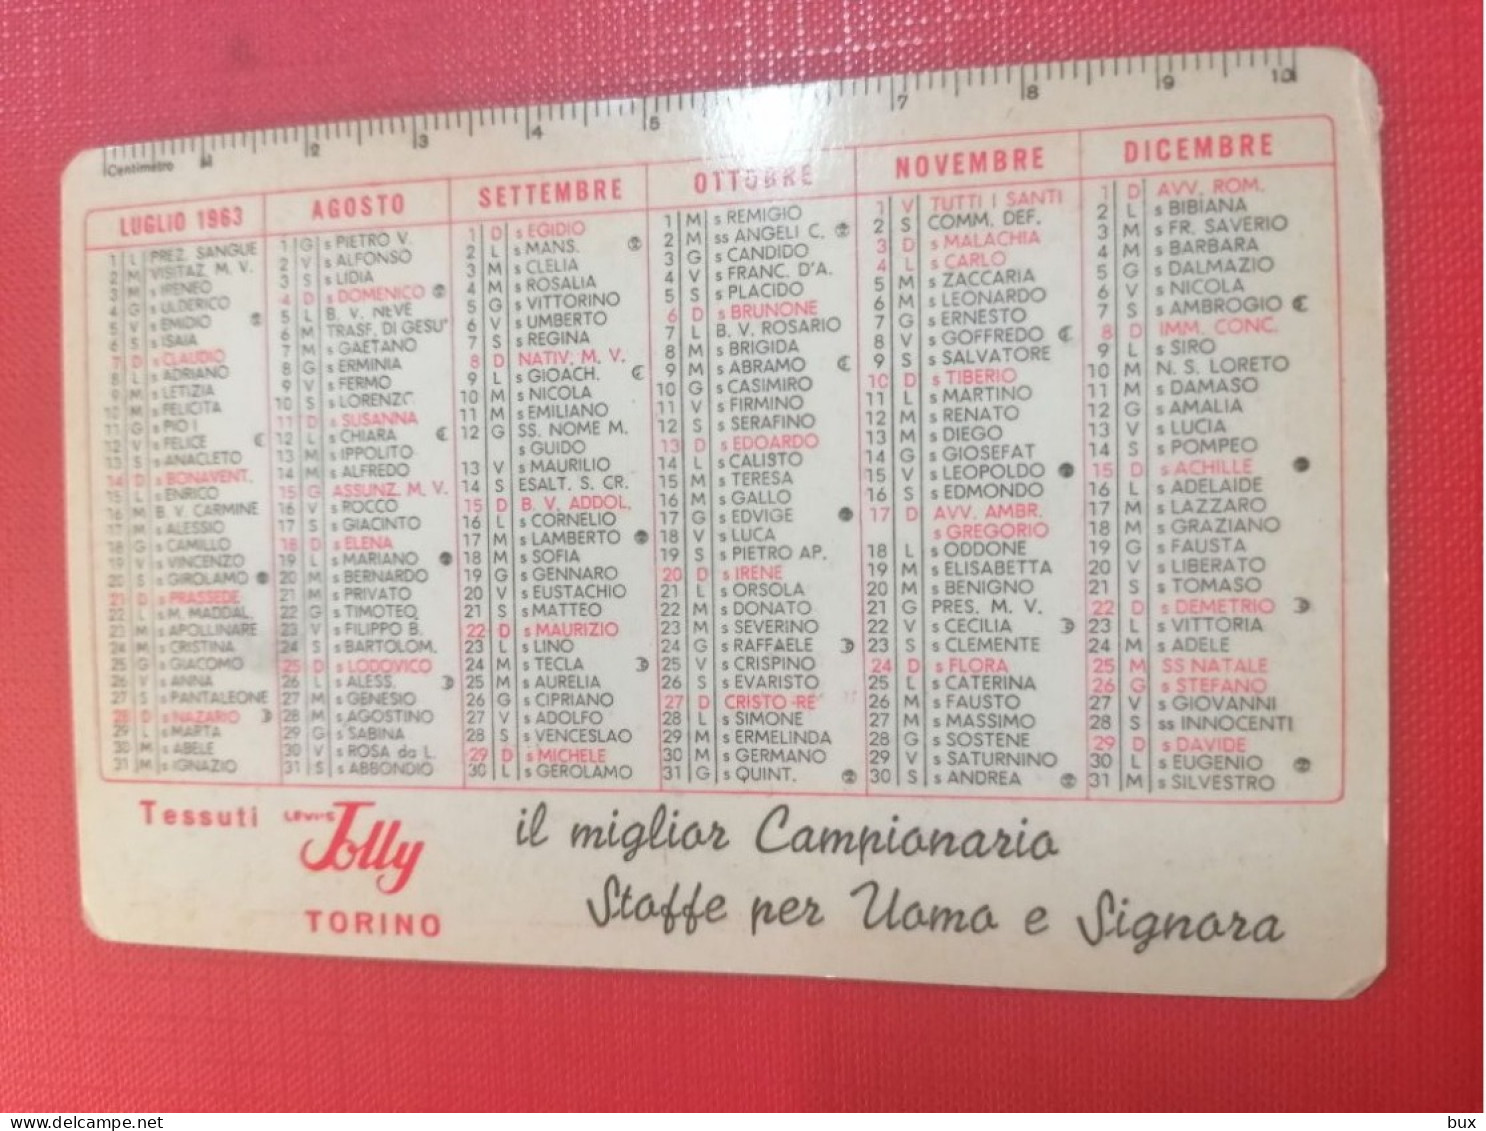 Centimetro 2 3 4 5 7 8 9 10
LUGLIO 1963
1 L PREZ. SANGUE
2 M VISITAZ. M. V.
3 M s IRENEO
4 G s ULDERICO
5 V s EMIDIO
6 S s ISAIA
7 D s CLAUDIO
8 L s ADRIANO
9 M s LETIZIA
10 M s FELICITA
11 G s PIO I
12 V s FELICE
13 S s ANACLETO
14 D s BONAVENT.
15 L s ENRICO
16 M B. V. CARMINE
17 M s ALESSIO
18 G s CAMILLO
19 V s VINCENZO
20 S s GIROLAMO
21 D s PRASSEDE
22 L s M. MADDAL.
23 M s APOLLINARE
24 M s CRISTINA
25 G s GIACOMO
26 V s ANNA
27 S s PANTALEONE
28 D s NAZARIO
29 L s MARTA
30 M s ABELE
31 M s IGNAZIO
AGOSTO
1 G s PIETRO V.
2 V s ALFONSO
3 S s LIDIA
4 D s DOMENICO
5 L B. V. NEVE
6 M TRASF. DI GESU'
7 M s GAETANO
8 G s ERMINIA
9 V s FERMO
10 S s LORENZO
11 D s SUSANNA
12 L s CHIARA
13 M s IPPOLITO
14 M s ALFREDO
15 G ASSUNZ. M. V.
16 V s ROCCO
17 S s GIACINTO
18 D s ELENA
19 L s MARIANO
20 M s BERNARDO
21 M s PRIVATO
22 G s TIMOTEO
23 V s FILIPPO B.
24 S s BARTOLOM.
25 D s LODOVICO
26 L s ALESS.
27 M s GENESIO
28 M s AGOSTINO
29 G s SABINA
30 V s ROSA da L.
31 S s ABBONDIO
SETTEMBRE
1 D s EGIDIO
2 L s MANS.
3 M s CLELIA
4 M s ROSALIA
5 G s VITTORINO
6 V s UMBERTO
7 S s REGINA
8 D NATIV. M. V.
9 L s GIOACH.
10 M s NICOLA
11 M s EMILIANO
12 G SS. NOME M.
s GUIDO
13 V s MAURILIO
14 S ESALT. S. CR.
15 D B. V. ADDOL.
16 L s CORNELIO
17 M s LAMBERTO
18 M s SOFIA
19 G s GENNARO
20 V s EUSTACHIO
21 S s MATTEO
22 D s MAURIZIO
23 L s LINO
24 M s TECLA
25 M s AURELIA
26 G s CIPRIANO
27 V s ADOLFO
28 S s VENCESLAO
29 D s MICHELE
30 L s GEROLAMO
OTTOBRE
1 M s REMIGIO
2 M ss ANGELI C.
3 G s CANDIDO
4 V s FRANC. D'A.
5 S s PLACIDO
6 D s BRUNONE
7 L B. V. ROSARIO
8 M s BRIGIDA
9 M s ABRAMO
10 G s CASIMIRO
11 V s FIRMINO
12 S s SERAFINO
13 D s EDOARDO
14 L s CALISTO
15 M s TERESA
16 M s GALLO
17 G s EDVIGE
18 V s LUCA
19 S s PIETRO AP.
20 D s IRENE
21 L s ORSOLA
22 M s DONATO
23 M s SEVERINO
24 G s RAFFAELE
25 V s CRISPINO
26 S s EVARISTO
27 D CRISTO RE
28 L s SIMONE
29 M s ERMELINDA
30 M s GERMANO
31 G s QUINT.
NOVEMBRE
1 V TUTTI I SANTI
2 S COMM. DEF.
3 D s MALACHIA
4 L s CARLO
5 M s ZACCARIA
6 M s LEONARDO
7 G s ERNESTO
8 V s GOFFREDO
9 S s SALVATORE
10 D s TIBERIO
11 L s MARTINO
12 M s RENATO
13 M s DIEGO
14 G s GIOSEFAT
15 V s LEOPOLDO
16 S s EDMONDO
17 D AVV. AMBR.
s GREGORIO
18 L s ODDONE
19 M s ELISABETTA
20 M s BENIGNO
21 G PRES. M. V.
22 V s CECILIA
23 S s CLEMENTE
24 D s FLORA
25 L s CATERINA
26 M s FAUSTO
27 M s MASSIMO
28 G s SOSTENE
29 V s SATURNINO
30 S s ANDREA
DICEMBRE
1 D AVV. ROM.
2 L s BIBIANA
3 M s FR. SAVERIO
4 M s BARBARA
5 G s DALMAZIO
6 V s NICOLA
7 S s AMBROGIO
8 D IMM. CONC.
9 L s SIRO
10 M N. S. LORETO
11 M s DAMASO
12 G s AMALIA
13 V s LUCIA
14 S s POMPEO
15 D s ACHILLE
16 L s ADELAIDE
17 M s LAZZARO
18 M s GRAZIANO
19 G s FAUSTA
20 V s LIBERATO
21 S s TOMASO
22 D s DEMETRIO
23 L s VITTORIA
24 M s ADELE
25 M SS NATALE
26 G s STEFANO
27 V s GIOVANNI
28 S ss INNOCENTI
29 D s DAVIDE
30 L s EUGENIO
31 M s SILVESTRO
Tessuti LEVI'S Jolly
TORINO
il miglior Campionario
Stoffe per Uomo e Signora
www.delcampe.net
bux